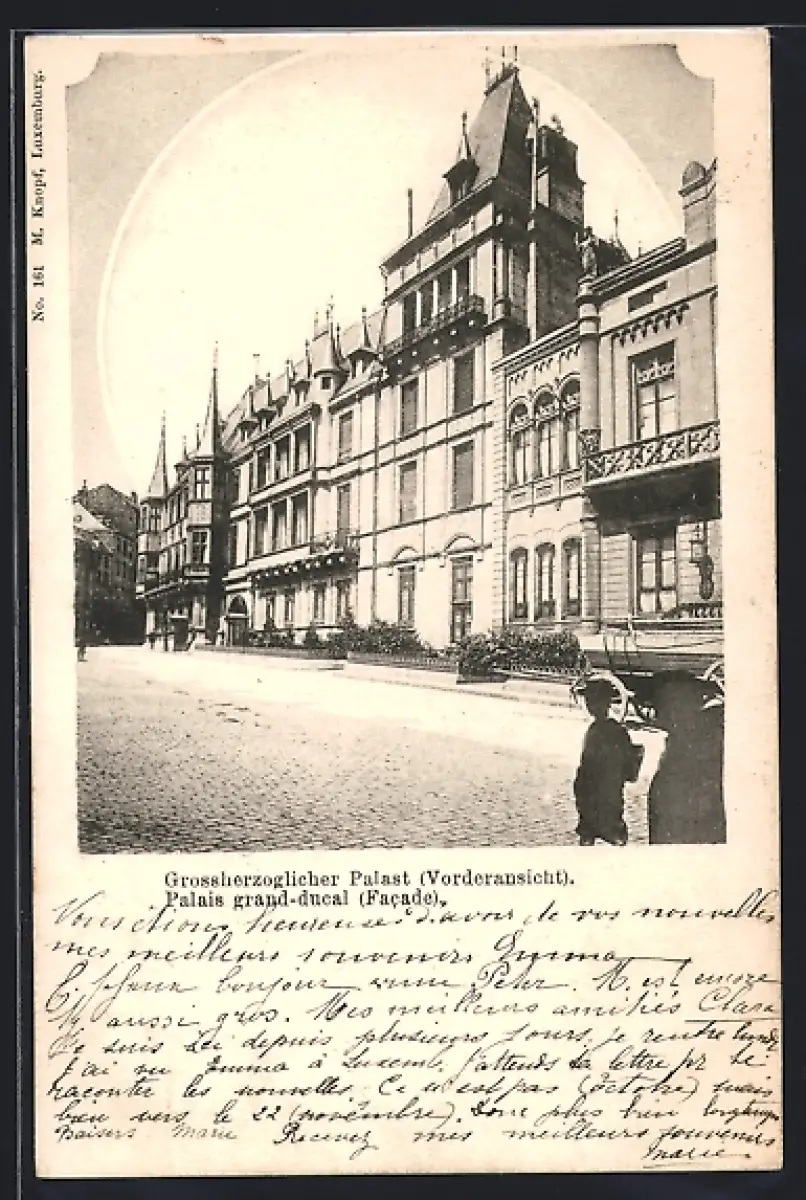 No. 161 M. Knopf, Luxemburg.
Grossherzoglicher Palast (Vorderansicht).
Palais grand-ducal (Façade).
Nous étions heureuses d'avoir de vos nouvelles
mes meilleurs souvenirs Emma
bonjour Peter. M. est encore
aussi gros. Mes meilleurs amitiés Clara
Je suis ici depuis plusieurs jours, je rentre lundi
J'ai vu Emma à Luxemb. j'attends ta lettre pr te
raconter les nouvelles. Ce n'est pas (octobre) mais
bien vers le 22 (novembre). Donc plus bien longtemps
Baisers Marie Recevez mes meilleurs souvenirs
Marie